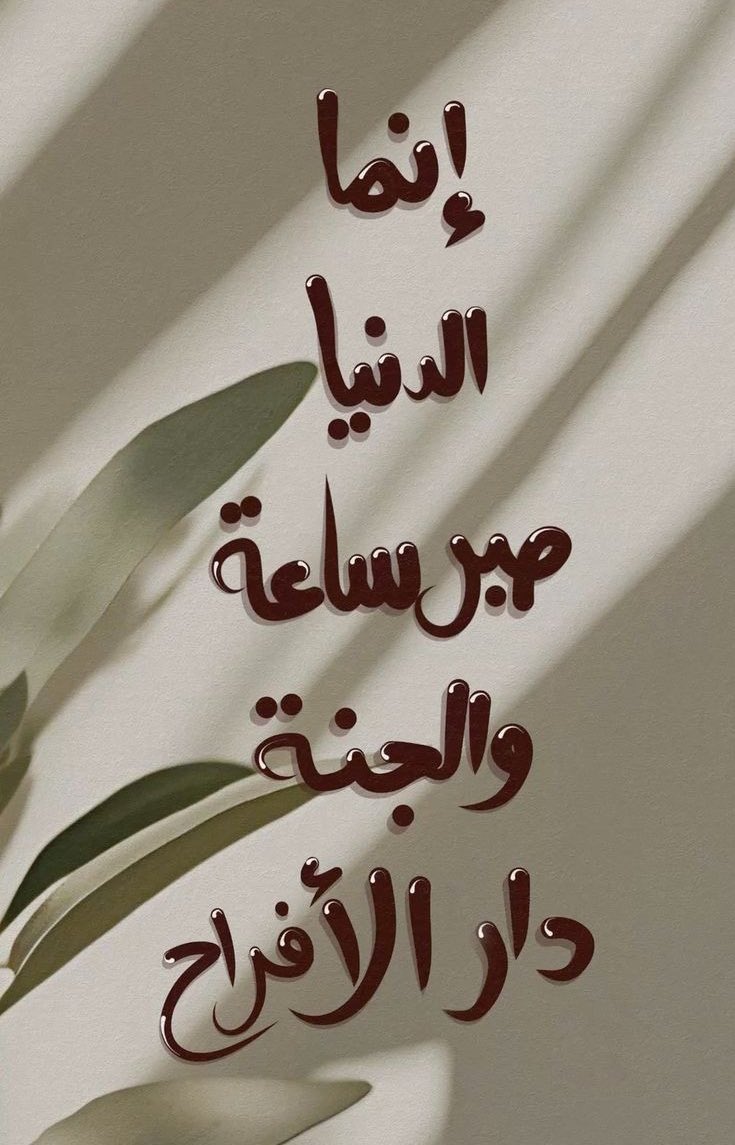 إنما
الدنيا
صبر ساعة
والجنة
دار الأفراح